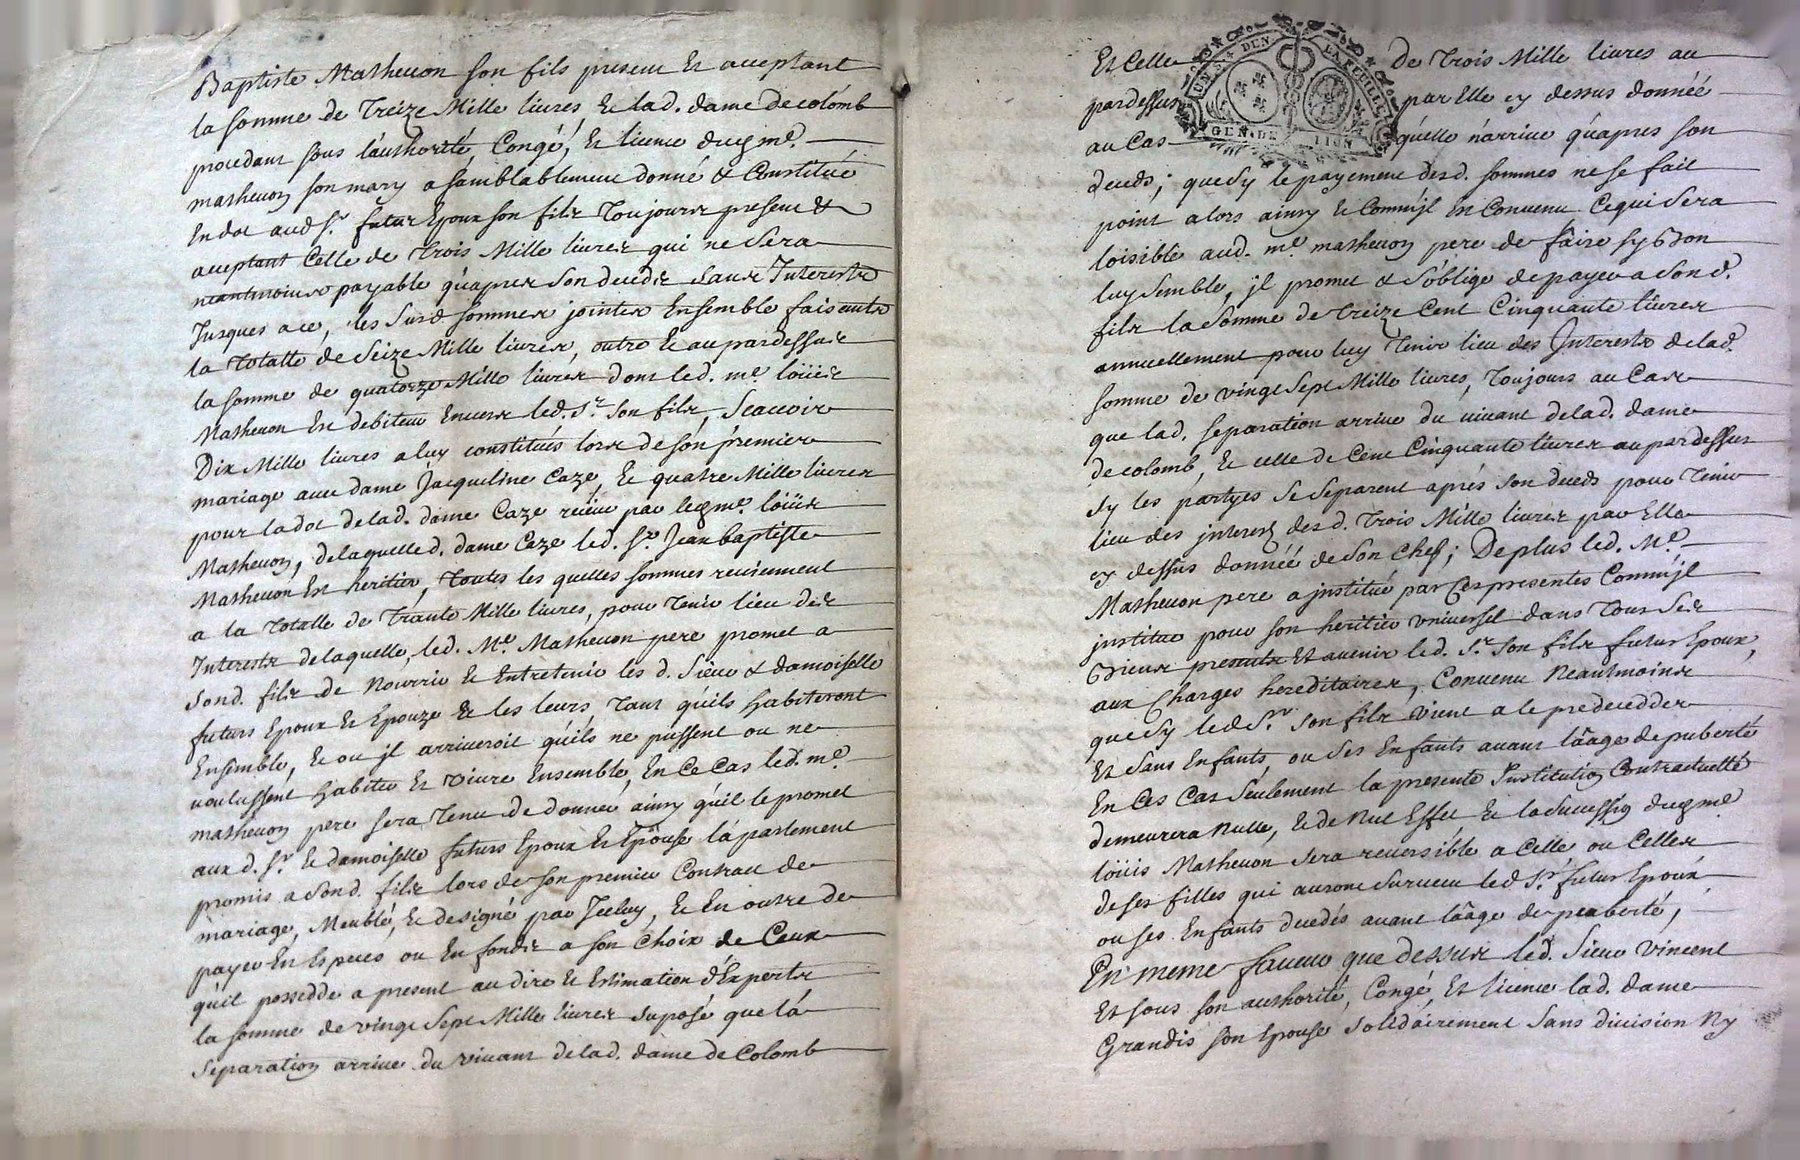 Baptiste Matheuon son fils present Et aceptant
la somme de Treize Mille liures, Et lad. dame de colomb
procedant sous l'authorité Congé, Et licence dud. me.
matheuon son mary a semblablement donné & Constitué
En dot aud sr. futur Epoux son fils Toujours present &
aceptant Celle de Trois Mille liures qui ne sera
neantmoins payable qu'apres son decéds sans Interests
Jusques a ce, les susd sommes jointes Ensemble faisants
la Totalle de Seize Mille liures, outre & au pardessus
la somme de quatorze Mille liures dont led. me. loüis
Matheuon Est debiteur Enuers led. Sr. son fils, Scauoir
Dix Mille liures a luy constitués lors de son premier
mariage auec dame Jacqueline Caze, Et quatre Mille liures
pour la dot delad. dame Caze reçüe par led. me. loüis
Matheuon, de laquelle d. dame Caze led. sr. Jean baptiste
Matheuon Est heritier, Toutes les quelles sommes reuiennent
a la Totalle de Trante Mille liures, pour Tenir lieu des
Interests de laquelle, led. Me. Matheuon pere promet a
sond. fils de Nourrir & Entretenir les d. Sieur & damoiselle
futurs Epoux Et Epouze & les leurs Tant qu'ils habiteront
Ensemble, Et ou jl arriueroit qu'ils ne pussent ou ne
voulussent habiter Et viure Ensemble, En Ce Cas led. me.
matheuon pere sera Tenu de donner ainsy qu'il le promet
aux d. sr. Et damoiselle futurs Epoux Et Epouse l'apartement
promis a sond. fils lors de son premier Contract de
mariage, Meublé, Et designé par Jceluy, Et En outre de
payer En Especes ou En fonds a son choix de Ceux
qu'il possedde a present au dire & Estimation d'Experts
la somme de vingt Sept Mille liures suposé que la
separation arriue du viuant de lad. dame de Colomb
Et Celle de Trois Mille liures au
pardessus par Elle cy dessus donnée
au Cas qu'elle n'arriue qu'apres son
deceds; que sy le payement desd. sommes ne se fait
point alors ainsy & Comm'jl Est Conuenu Ce qui sera
loisible aud. me. matheuon pere de faire sy bon
luy semble, jl promet & s'oblige de payer a son d.
fils la somme de treize Cent Cinquante liures
annuellement pour luy Tenir lieu des Interests de lad.
somme de vingt Sept Mille liures, Toujours au Cas
que lad. separation arriue du viuant de lad. dame
de colomb, & celle de Cent Cinquante liures au pardessus
sy les partyes se separent aprés son deceds pour Tenir
lieu des interets des d. Trois Mille liures par Elle
cy dessus donnée de son chef; De plus led. Me.
Matheuon pere a jnstitué par Ces presentes Comm'jl
jnstitue pour son heritier vniuersel dans Tous Ses
Biens presents Et auenir led. sr. son fils futur Epoux,
aux Charges hereditaires, Conuenu Neantmoins
que sy led sr. son fils vient a le predecedder
Et sans Enfants, ou ses Enfants auant l'âage de puberté
En Ces Cas seulement la presente Institution Contractuelle
demeurera Nulle, & de Nul Effet & la succession dud. me
loüis Matheuon sera reuersible a Celle ou Celles
de ses filles qui auront suruecu led sr. futur Epoux
ou ses Enfants decedés auant l'âage de puberté,
En meme faueur que dessus led. Sieur vincent
Et sous son authorité, Congé, Et licence lad. dame
Grandis son Epouse solidairement sans diuision Ny
GEN. DE LION